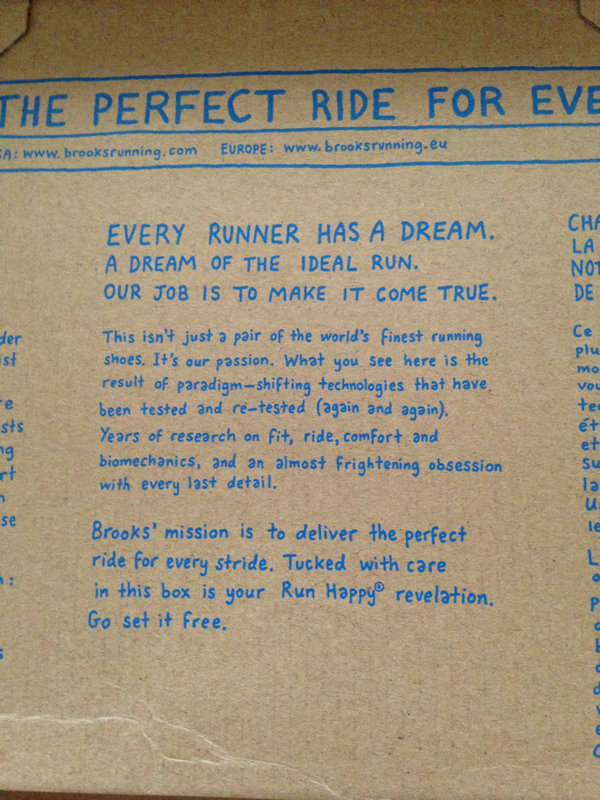 THE PERFECT RIDE FOR EVE
SA: www.brooksrunning.com EUROPE: www.brooksrunning.eu
EVERY RUNNER HAS A DREAM.
A DREAM OF THE IDEAL RUN.
OUR JOB IS TO MAKE IT COME TRUE.
This isn't just a pair of the world's finest running
shoes. It's our passion. What you see here is the
result of paradigm-shifting technologies that have
been tested and re-tested (again and again).
Years of research on fit, ride, comfort and
biomechanics, and an almost frightening obsession
with every last detail.
Brooks' mission is to deliver the perfect
ride for every stride. Tucked with care
in this box is your Run Happy® revelation.
Go set it free.
CHA
LA
NOT
DE
Ce
plu
mo
vou
tec
ét
et
su
la
U
le